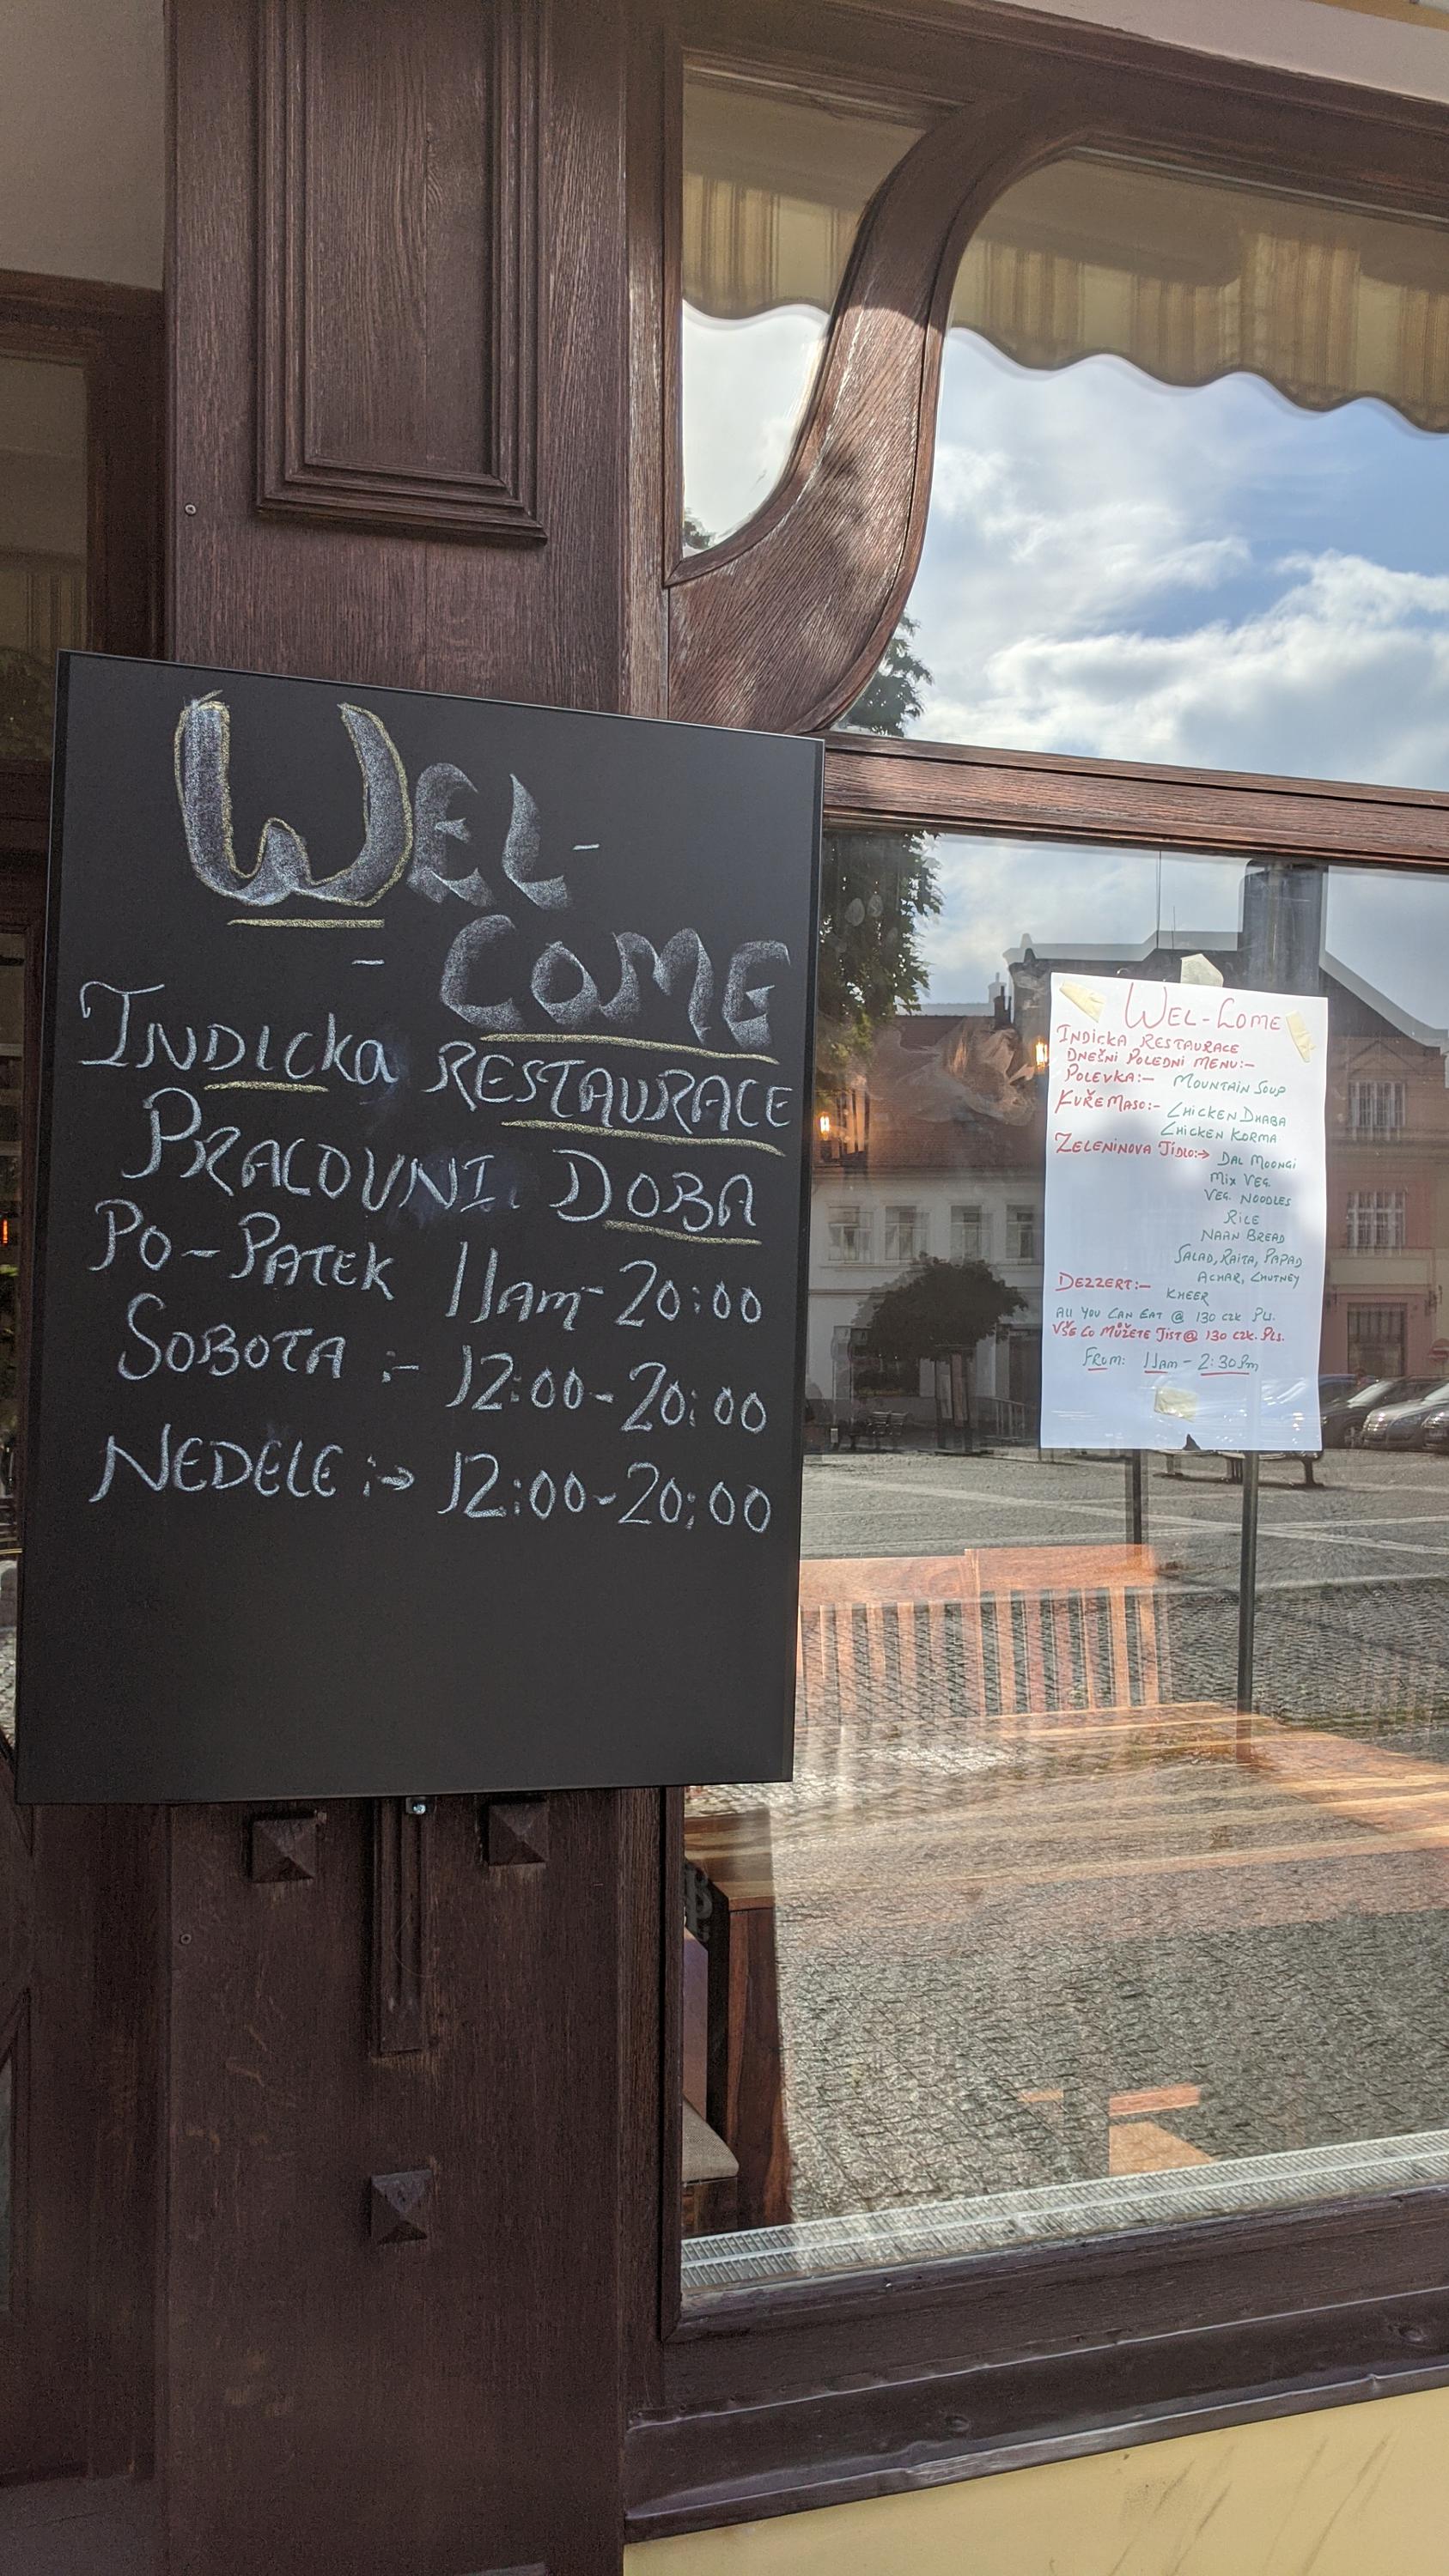 WEL-
- COME
INDICKA RESTAURACE
PRACOVNI DOBA
PO-PATEK 11AM-20:00
SOBOTA :- 12:00-20:00
NEDELE :→ 12:00-20:00
WEL-COME
INDICKA RESTAURACE
DNEŠNI POLEDNI MENU:-
POLEVKA:- MOUNTAIN SOUP
KUŘE MASO:- CHICKEN DHABA
CHICKEN KORMA
ZELENINOVA JÍDLO:→ DAL MOONGI
MIX VEG.
VEG. NOODLES
RICE
NAAN BREAD
SALAD, RAITA, PAPAD
ACHAR, CHUTNEY
DEZZERT:- KHEER
All YOU CAN EAT @ 130 CZK PLS.
VŠE CO MŮŽETE JIST @ 130 CZK. PLS.
FROM: 11AM - 2:30PM